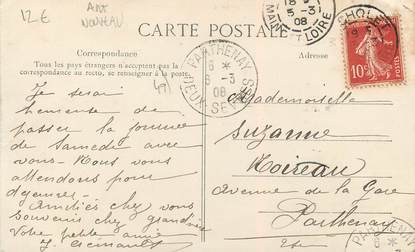 12€
ART
NOUVEAU
CARTE POSTALE
Correspondance
Tous les pays étrangers n'acceptent pas la
correspondance au recto, se renseigner à la poste.
Adresse
MAINE ET LOIRE
5-3
08
CHOLET
10c
PARTHENAY
6 *
6-3
08
DEUX-SEVRES
Je serai
heureuse de
passer la journée
de Samedi avec
vous. Nous vous
attendons pour
déjeuner.
Amitiés chez vous
Souvenir chez grand'mère
Votre petite amie
J.
Mademoiselle
Suzanne
Moireau
Avenue de la Gare
Parthenay
PARTHENAY
6 *